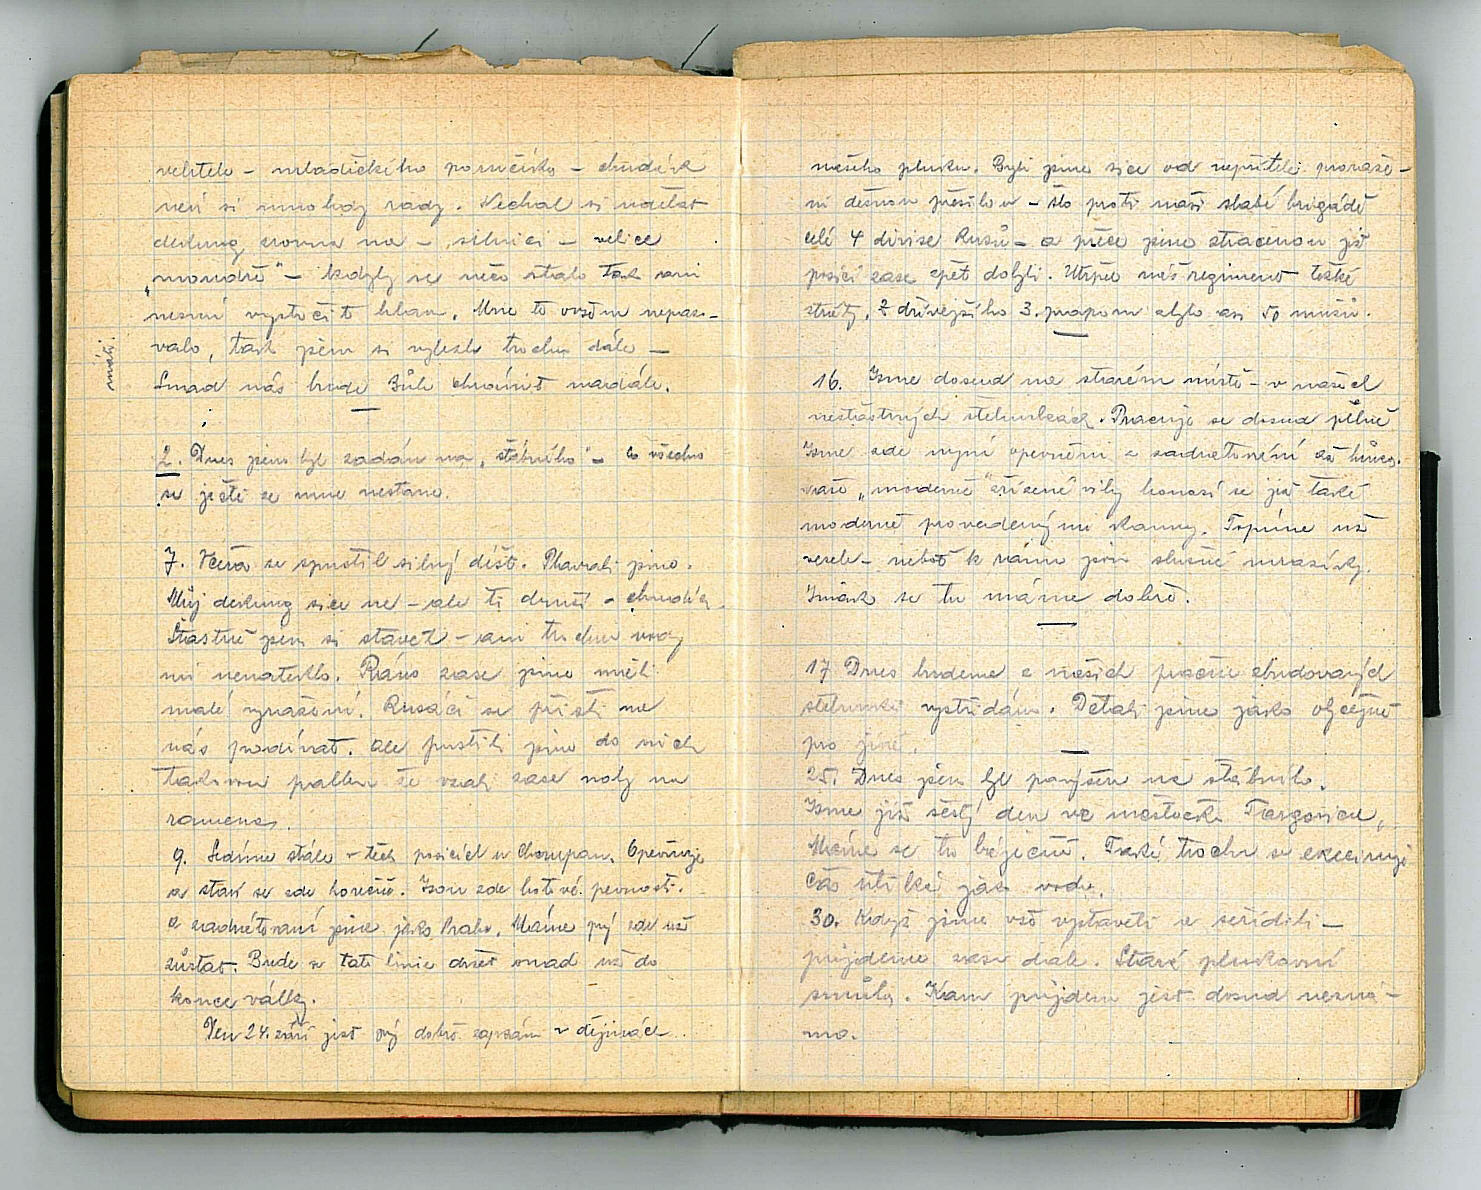 velitele – mladičkého poručíka – chudák
neví si mnohdy rady. Nechal si udělat
deckung zrovna na – silnici – velice
„moudře“ – kdyby se něco stalo tak ani
nesmí vystrčit hlavu. Mne to ovšem nepaso-
valo, tak jsem si vylezl trochu dále –
Snad nás bude Bůh chránit nadále.
2. Dnes jsem byl zadán na „štábního“ – co všechno
se ještě ze mne nestane.
7. Včera se spustil silný déšť. Plavali jsme.
Můj deckung sice ne – ale ti druzí – chudáci.
Šťastně jsem si stavěl – ani trochu vody
mi nenateklo. Ráno zase jsme měli
malé vyrážení. Rusáci se přišli na
nás podívat. Ale pustili jsme do nich
takovou palbu že vzali zase nohy na
ramena.
9. Sedíme stále v těch posicích u Chorupan. Opevňuje
a staví se zde horečně. Jsou zde hotové pevnosti.
a zadrátovaní jsme jako Praha. Máme prý zde už
zůstat. Bude se tato linie držet snad už do
konce války.
Den 24. září jest prý dobře zapsán v dějinách
našeho pluku. Byli jsme sice od nepřítele proraže-
ni děsnou přesilou – šlo proti naší slabé brigádě
celé 4 divise Rusů – a přece jsme ztracenou již
posici zase zpět dobyli. Utrpěl náš regiment těžké
ztráty. Z dřívějšího 3. praporu zbylo asi 50 mužů.
16. Jsme dosud na starém místě – v našich
nešťastných štelunkách. Pracuje se dosud pilně
Jsme zde nyní opevněni a zadrátováni až hrůza.
naše „moderně“ zřízené vily honosí se již také
moderně provedenými kamny. Topíme už
vesele – neboť k ránu jsou slušné mrazíky.
Jinak se tu máme dobře.
17 Dnes budeme z našich pracně zbudovaných
štelunků vystřídáni. Dělali jsme jako obyčejně
pro jiné.
25. Dnes jsem byl povýšen na štábního.
Jsme již šestý den ve městečku Targovica,
Máme se tu báječně. Také trochu se execíruje
Čas utíká jako voda.
30. Když jsme vše vystavěli a seřídili –
půjdeme zase dále. Staré plukovní
smůla. Kam půjdem jest dosud nezná-
mo.